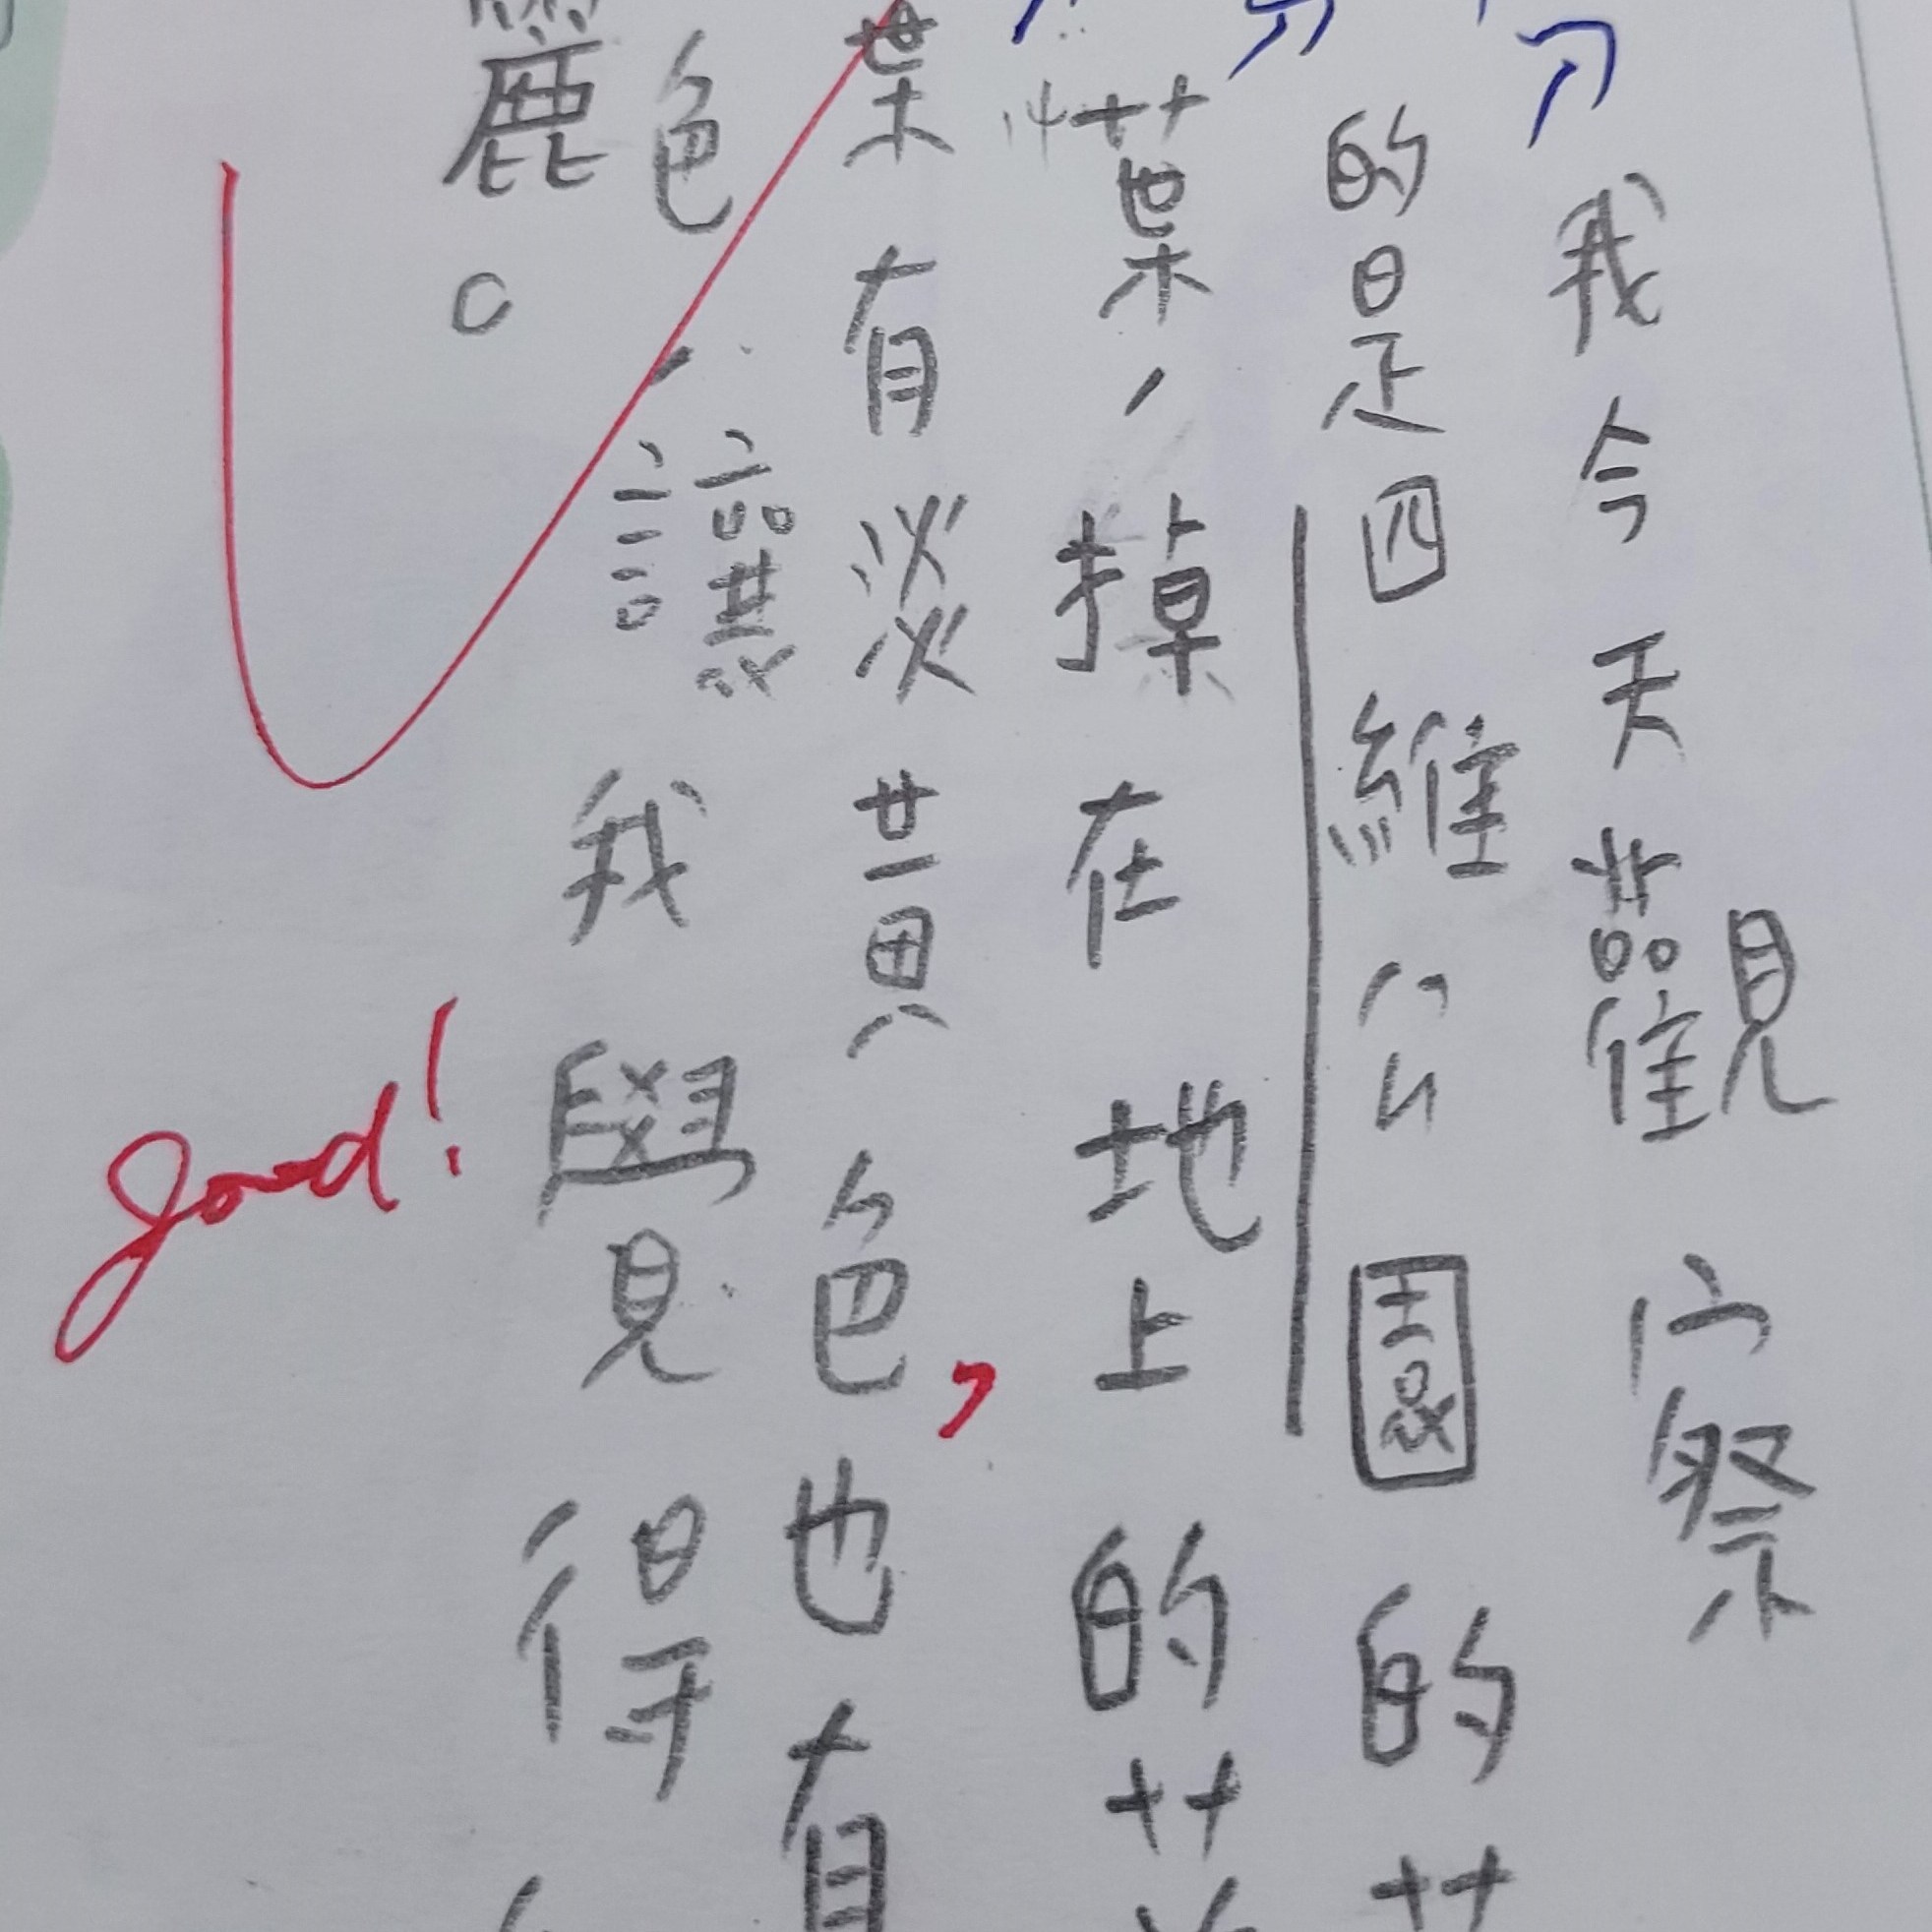 我今天觀察
的是四維公園的
葉，掉在地上的
葉有淡黃色，也有
色，讓我覺得
麗。
good!